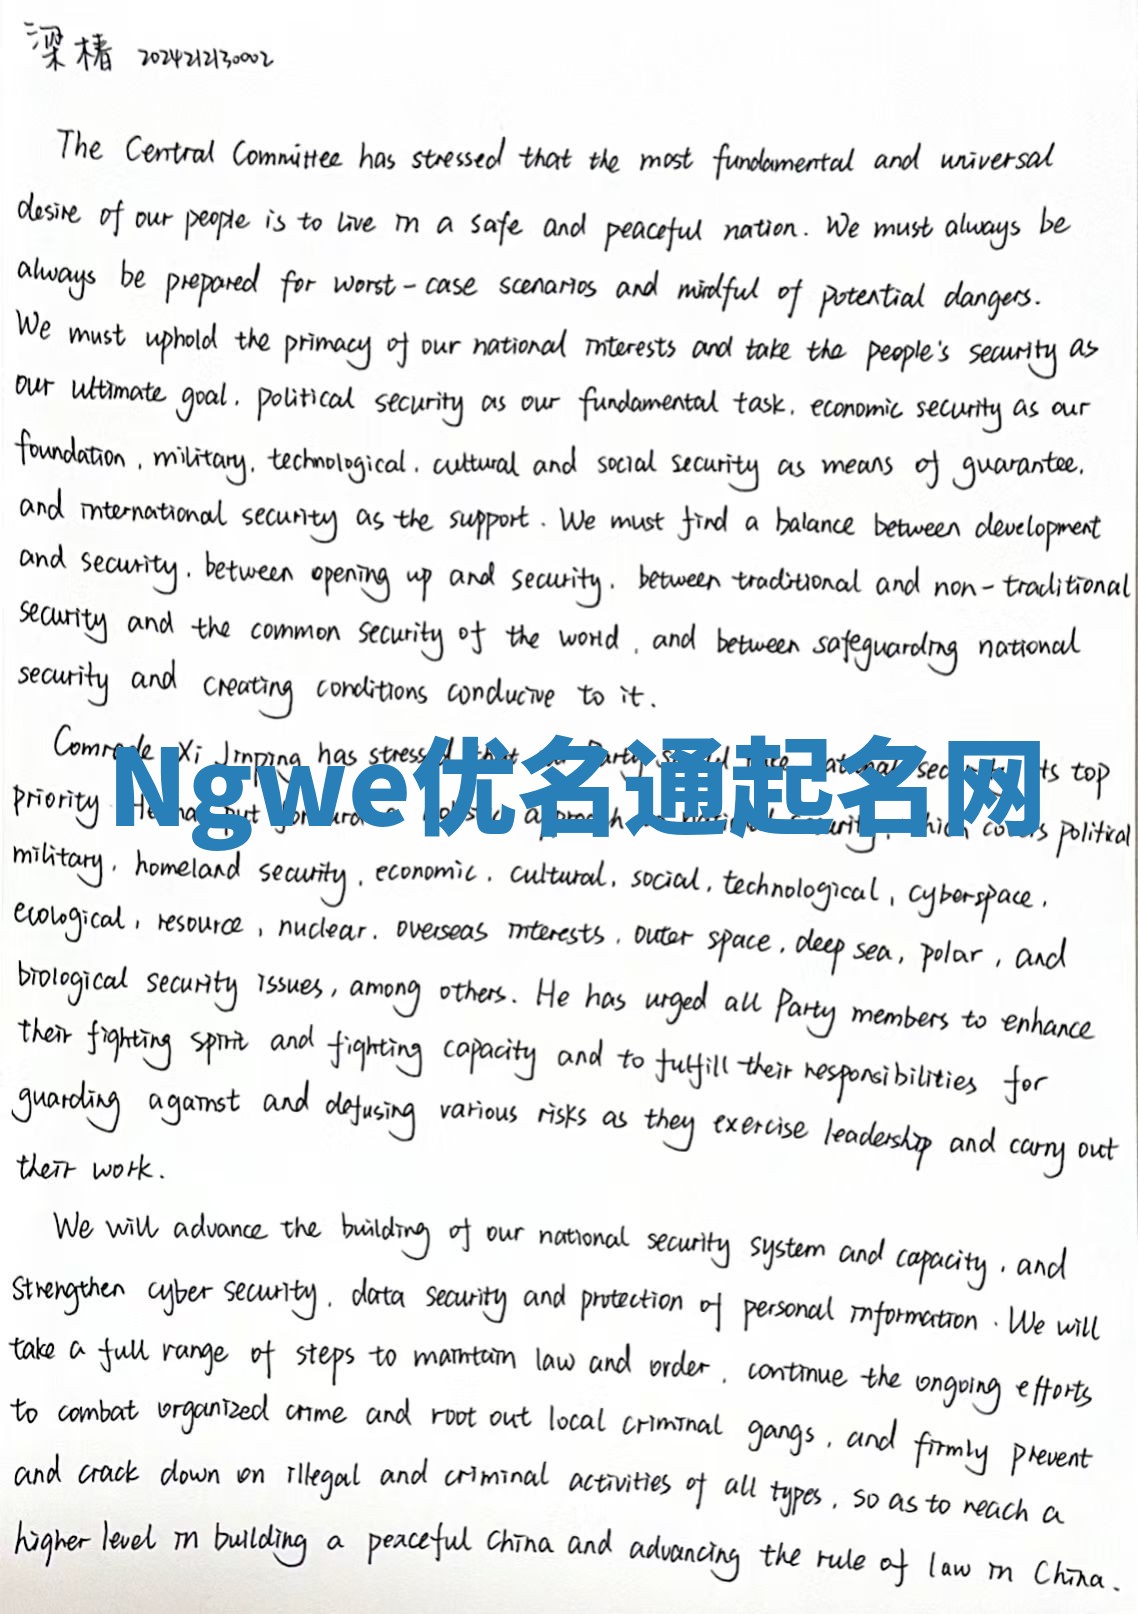 梁椿 2024212130002
The Central Committee has stressed that the most fundamental and universal
desire of our people is to live in a safe and peaceful nation. We must always be
always be prepared for worst-case scenarios and mindful of potential dangers.
We must uphold the primacy of our national interests and take the people's security as
our ultimate goal, political security as our fundamental task, economic security as our
foundation, military, technological, cultural and social security as means of guarantee,
and international security as the support. We must find a balance between development
and security, between opening up and security, between traditional and non-traditional
security and the common security of the world, and between safeguarding national
security and creating conditions conducive to it.
Comrade Xi Jinping has stressed that Party national security its top
Ngwe优名通起名网
priority He has put forward a approach national security, which covers political
military, homeland security, economic, cultural, social, technological, cyberspace,
ecological, resource, nuclear, overseas interests, outer space, deep sea, polar, and
biological security issues, among others. He has urged all Party members to enhance
their fighting spirit and fighting capacity and to fulfill their responsibilities for
guarding against and defusing various risks as they exercise leadership and carry out
their work.
We will advance the building of our national security system and capacity, and
strengthen cyber security, data security and protection of personal information. We will
take a full range of steps to maintain law and order, continue the ongoing efforts
to combat organized crime and root out local criminal gangs, and firmly prevent
and crack down on illegal and criminal activities of all types, so as to reach a
higher level in building a peaceful China and advancing the rule of law in China.